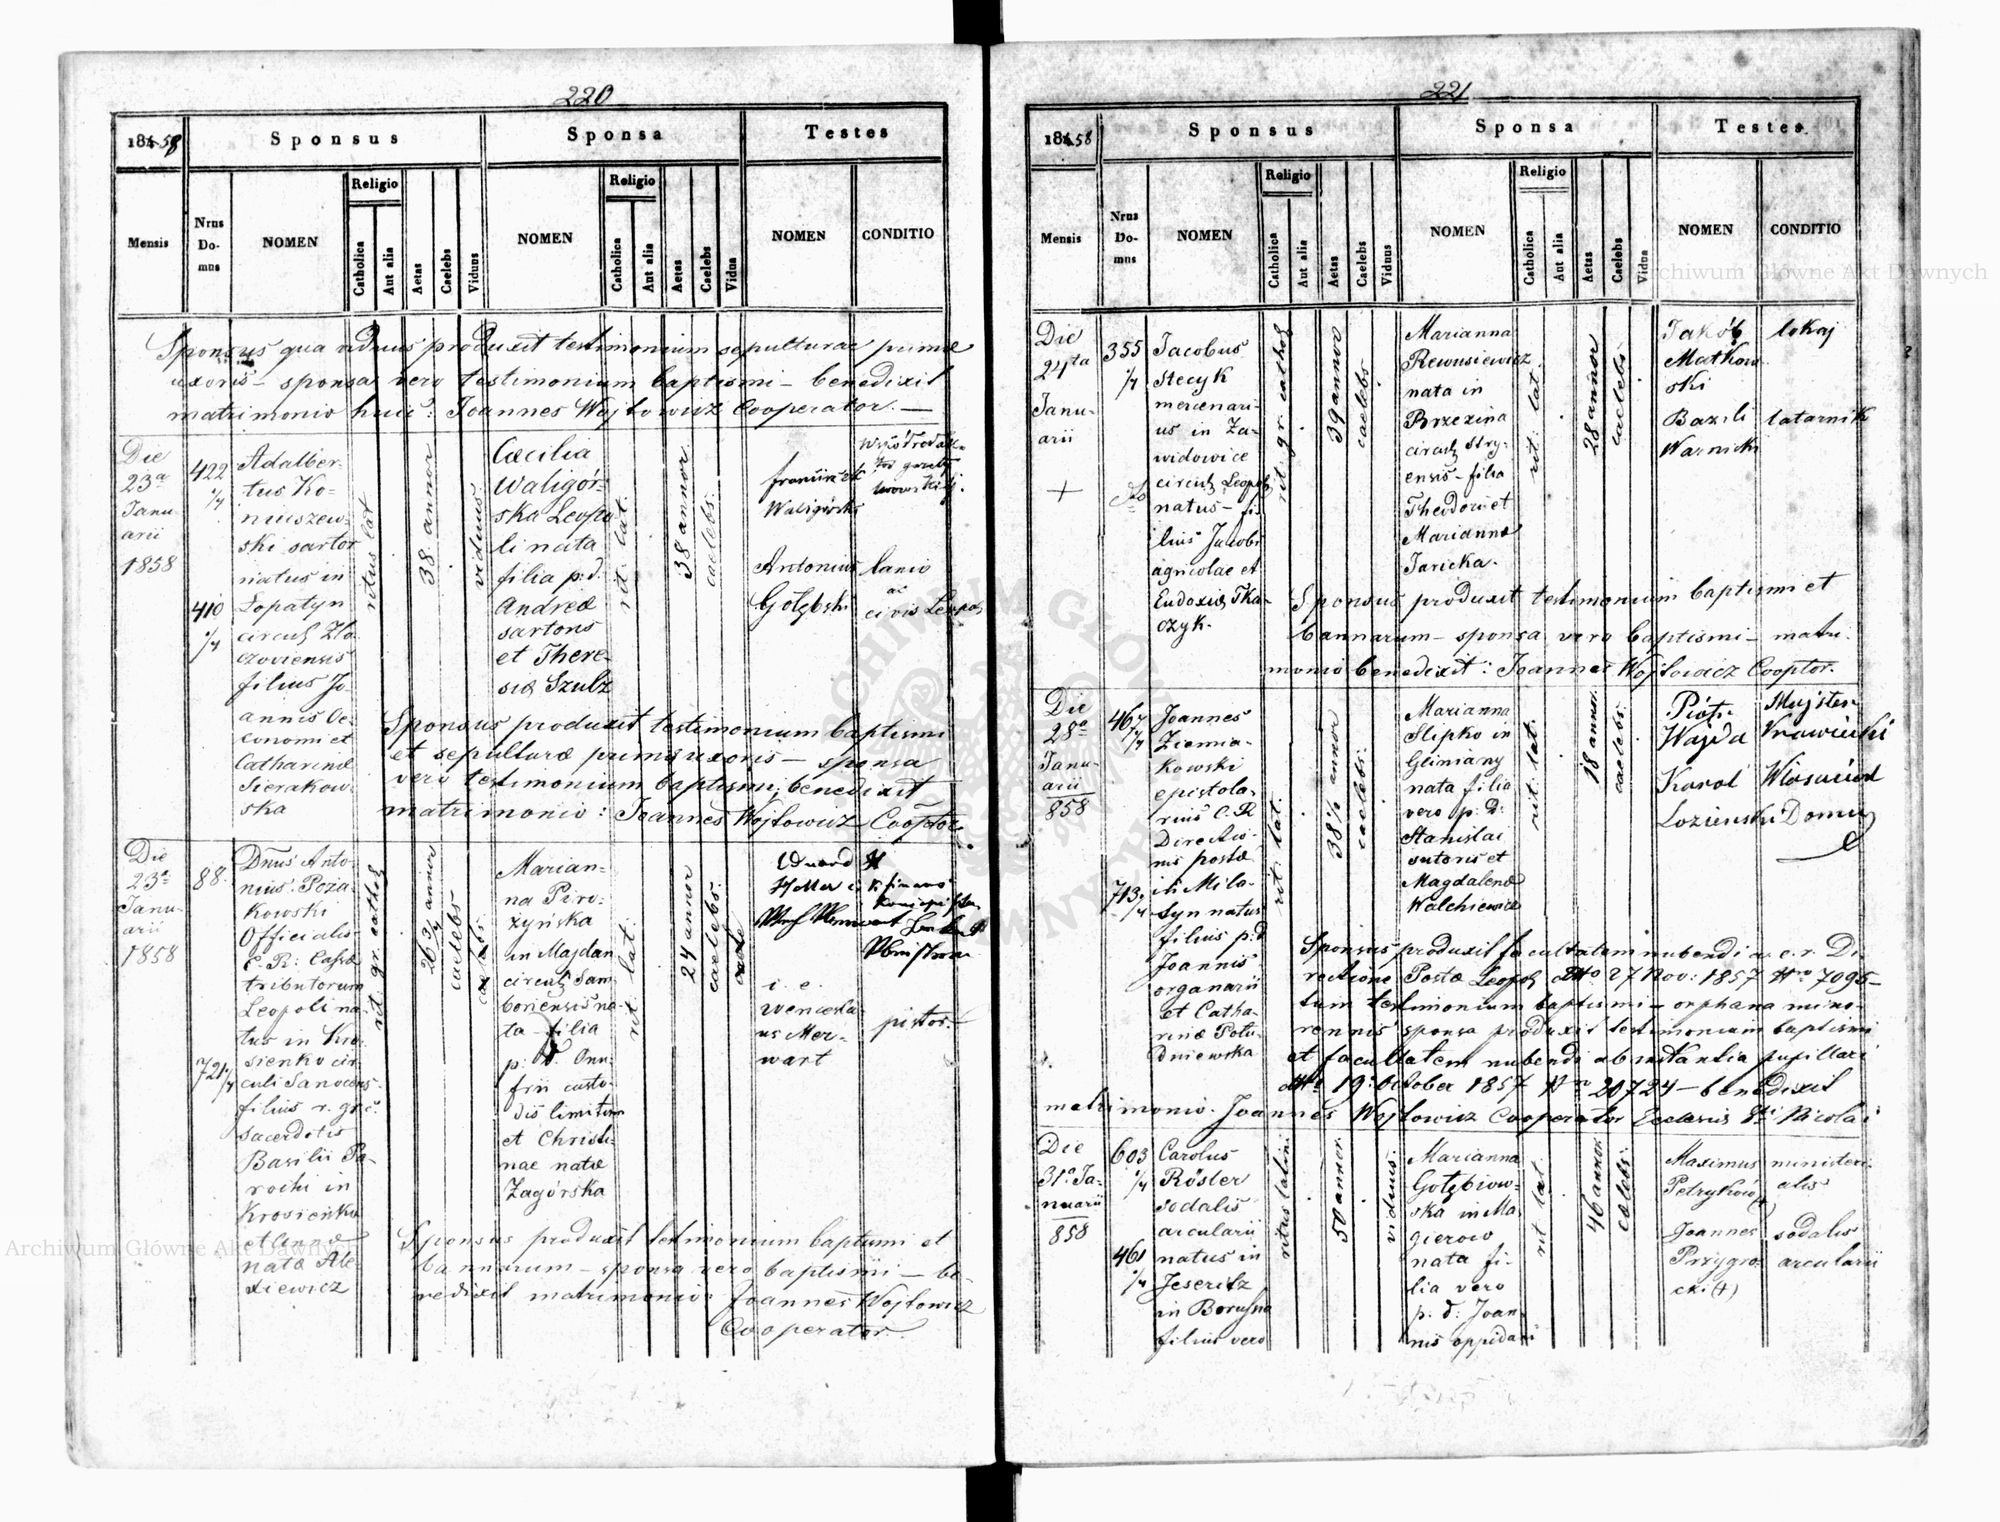 220
1858
Sponsus
Sponsa
Testes
Mensis
Nrus Domus
NOMEN
Religio
Catholica
Aut alia
Aetas
Caelebs
Viduus
NOMEN
Religio
Catholica
Aut alia
Aetas
Caelebs
Vidua
NOMEN
CONDITIO
Sponsus qua viduus produxit testimonium sepulturae primae
uxoris – sponsa vero testimonium baptismi – benedixit
matrimonio huic: Joannes Wojtowicz Cooperator. —
Die
23a
Janu-
arii
1858
422
1/4
410
1/4
Adalber-
tus Ko-
niuszew-
ski sartor
natus in
Lopatyn
circul Zlo-
czoviensis
filius Jo-
annis Oe-
conomi et
Catharinae
Sierakow-
ska
ritus lat
38 annor
viduus
Caecilia
Waligór-
ska Leopo
li nata
filia p: d:
Andreae
sartoris
et There-
siae Szulz
rit. lat.
38 annor
caelebs.
Waligórski
Antonius
Gołębski
lanio
ac
civis Leopol
Sponsus produxit testimonium baptismi
et sepulturae primae uxoris – sponsa
vero testimonium baptismi; benedixit
matrimonio: Joannes Wojtowicz Cooptor.
Die
23a
Janu-
arii
1858
88.
721 1/4
Dnus Anto-
nius Poża-
kowski
Officialis
C. R: Cassae
tributorum
Leopoli na-
tus in Kro-
sienko cir-
culi Sanocens.
filius r. gr. c.
Sacerdotis
Basilii Pa-
rochi in
Krosienko
et Annae
natae Ale-
xiewicz
rit: gr. cathol
26 3/4 annor
caelebs
Marian-
na Piro-
żyńska
in Majdan
circul Sam-
boriensis na-
ta – filia
p: d: Onu-
frii custo-
dis limitum
et Christi-
nae natae
Zagórska
rit: lat.
24 annor
caelebs.
i. e.
Wencesla-
us Mer-
wart
pistor. —
Sponsus produxit testimonium baptismi et
bannorum – sponsa vero baptismi – be-
nedixit matrimonio: Joannes Wojtowicz
Cooperator.
221
1858
Sponsus
Sponsa
Testes.
Mensis
Nrus Domus
NOMEN
Religio
Catholica
Aut alia
Aetas
Caelebs
Viduus
NOMEN
Religio
Catholica
Aut alia
Aetas
Caelebs
Vidua
NOMEN
CONDITIO
Die
24ta
Janu-
arii
+
355
1/4
Jacobus
Stecyk
mercenari-
us in Za-
widowice
circul Leopol
natus – fi-
lius Jacobi
agricolae et
Eudoxiae Tka-
czyk.
rit gr. cathol
39 annor
caelebs
Marianna
Rewusiewicz
nata in
Brzezina
circul Stry-
ensis – filia
Theodori et
Mariannae
Jaricka.
rit: lat.
28 annor
caelebs
Jakób
Matkow
ski
Bazili
Warnicki
lokaj
latarnik
Sponsus produxit testimonium baptismi et
bannorum – sponsa vero baptismi – matri-
monio benedixit: Joannes Wojtowicz Cooptor.
Die
28a
Janu-
arii
858
467
1/4
713
1/4
Joannes
Ziemia-
kowski
epistola-
rius C. R.
Directio-
nis postae
in Mila-
syn natus
filius p: d
Joannis
organarii
et Catha-
rinae Połu-
dniewska
rit: lat.
38 1/2 annor
caelebs.
Marianna
Slipko in
Gliniany
nata filia
vero p. d:
Stanislai
sutoris et
Magdalenae
Walchiewicz
rit: lat.
18 annor.
caelebs.
Piotr
Wajda
Karol
Lozienski
Majster
Krawiecki
Własciciel
Domu
Sponsus produxit facultatem nubendi a c. r. Di-
rectione Postae Leopol ddto 27 Nov: 1857 Nro 7095 –
tum testimonium baptismi – orphana mino-
rennis sponsa produxit testimonium baptismi
et facultatem nubendi ab instantia pupillari
ddto 19. October 1857 Nro 20724 – benedixit
matrimonio. Joannes Wojtowicz Cooperator Ecclesiae Sti Nicolai
Die
31a Ja-
nuarii
858
603
1/4
461
1/4
Carolus
Röster
sodalis
arcularii
natus in
Jeseritz
in Borussia
filius vero
ritus latini
50 annor.
viduus.
Marianna
Gołębiow-
ska in Ma-
gierow
nata fi-
lia vero
p. d: Joan-
nis oppidani
rit lat
46 annor
caelebs.
Maximus
Petryków
Joannes
Przygro
cki (+)
ministeri-
alis
sodalis
arcularii
Archiwum Główne Akt Dawnych
Archiwum Główne Akt Dawnych
ARCHIWUM GŁÓWNE AKT DAWNYCH